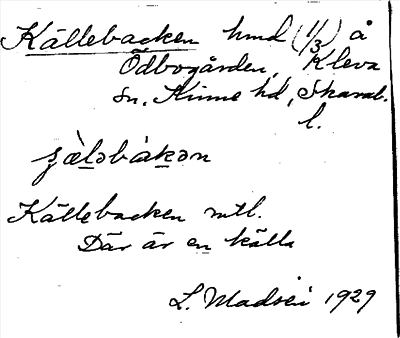 Källebacken hmd (1/3) å
Ödbogården, Kleva
sn, Kinne hd, Skarab.
l.
Källebacken mtl.
Där är en källa
L. Madsén 1929